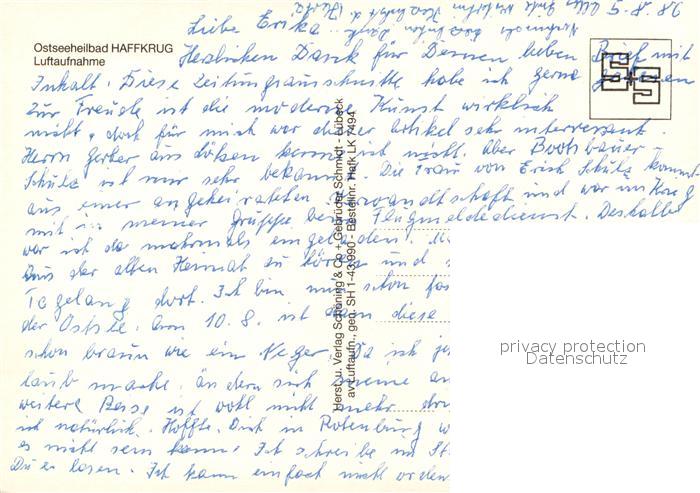 Ostseeheilbad HAFFKRUG
Luftaufnahme
5.8.86
Liebe Erika
Herzlichen Dank für Deinen lieben Brief mit
Inhalt. Diese Zeitungsausschnitte habe ich gerne gelesen
Zur Freude ist die moderne Kunst wirklich
nicht, doch für mich war dieser Artikel sehr interessant.
Herrn aus kenne ich nicht. Aber Bootsbauer-
Schulz ist mir sehr bekannt. Die Frau von Erich Schulz kommt
aus einer angeheirateten Verwandtschaft und war im Krieg
mit in meiner Gruppe beim Flugmeldedienst. Deshalb
war ich da mehrmals eingeladen.
aus der alten Heimat zu hören und
Tagelang dort. Ich bin nun schon
der Ostsee. Am 10.8. ist dann diese
schon braun wie ein Neger. Da ich
laub mache, ändern sich meine
weitere Reise ist wohl nicht mehr
ich natürlich. Hoffte, Dich in Rotenburg
es nicht sein kann. Ich schreibe im
Du es lesen. Ich kann einfach nicht
Herst. u. Verlag Schöning & Co + Gebrüder Schmidt - Lübeck
av-Luftaufn., gen. SH 1-43/990 - Bestellnr. Hafk LK 7494
E+S
privacy protection
Datenschutz